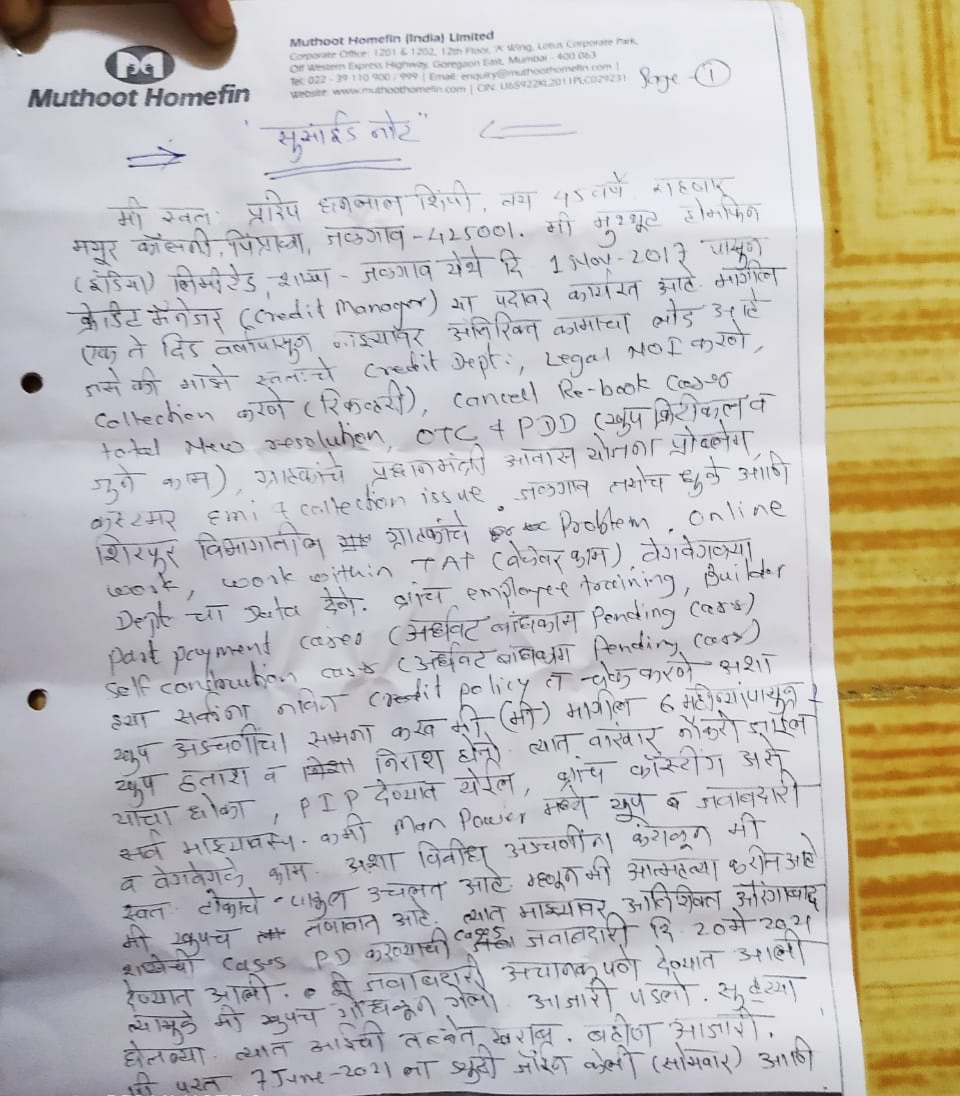 Muthoot Homefin (India) Limited
Corporate Office: 1201 & 1202, 12th Floor, 'A' Wing, Lotus Corporate Park,
Off Western Express Highway, Goregaon East, Mumbai - 400 063
Tel: 022 - 39 110 900 / 999 | Email: enquiry@muthoothomefin.com |
Website: www.muthoothomefin.com | CIN: U65922KL2011PLC029231
Muthoot Homefin
Page - 1
" सुसाईड नोट"
मी स्वतः प्रदिप छगनलाल शिंपी, वय 45 वर्षे, राहणार
मयूर कॉलनी, पिंप्राळा, जळगाव - 425001. मी मुथ्थूट होमफिन
(इंडिया) लिमीटेड, शाखा - जळगाव येथे दि 1 Nov - 2017 पासून
क्रेडिट मॅनेजर (Credit Manager) या पदावर कार्यरत आहे. मागील
एक ते दिड वर्षापासून माझ्यावर अतिरिक्त कामाचा लोड आहे
जसे की माझे स्वतःचे Credit Dept:, Legal NOI करणे,
Collection करणे (रिकव्हरी), cancell Re-book Cases
total New resolution, OTC & PDD (खुप क्रिटीकल व
जुने काम), ग्राहकांचे प्रधानमंत्री आवास योजना प्रोब्लेम,
कस्टमर Emi & collection issue. जळगाव तसेच धुळे आणि
शिरपूर विभागातील ग्राहकांचे Problem. Online
work, work within TAT (वेळेवर काम), वेगवेगळ्या
Dept चा Data देणे. ब्रांच employee training, Builder
part payment cases (अर्धवट बांधकाम Pending Cases)
Self constrution cases (अर्धवट बांधकाम Pending Cases)
ह्या सर्वांना नविन Credit policy त चेक करणे अशा
खुप अडचणींचा सामना करत मी (मी) मागील 6 महिन्यांपासून
खुप हताश व निराश होतो. त्यात वारंवार नौकरी जाईल
याचा धोका, PIP देण्यात येईल, ब्रांच कॉस्टींग असे
सर्व माझ्यावरच. कमी Man Power मध्ये खुप जवाबदारी
व वेगवेगळे काम. अशा विविध अडचणींना कंटाळून मी
स्वतः टोकाचे पाऊल उचलत आहे. म्हणून मी आत्महत्या करीत आहे
मी खुपच तणावात आहे. त्यात माझ्यावर अतिरिक्त औरंगाबाद
शाखेची cases PD करण्याची cases जवाबदारी दि. 20 मे 2021
देण्यात आली. ही जवाबदारी अचानकपणे देण्यात आली
त्यामुळे मी खुपच गोंधळून गेलो. आजारी पडलो. सुट्ट्या
घेतल्या. त्यात आईची तब्येत खराब. बहीण आजारी.
मी परत 7 June - 2021 ला ड्युटी जॉईन केली (सोमवार) आणि